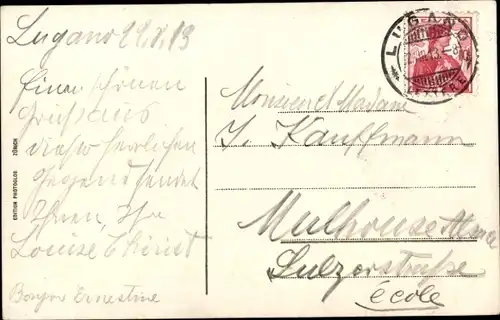 Lugano 22.8.13
Einen schönen
Gruss aus
dieser herrlichen
Gegend sendet
Ihnen, Ihre
Louise Christ
Bonjour Ernestine
EDITION PHOTOGLOB ZÜRICH
LUGANO
LETTERE
Monsieur et Madame
J. Kauffmann
Mulhouse Alsace
Sulzerstraße
école